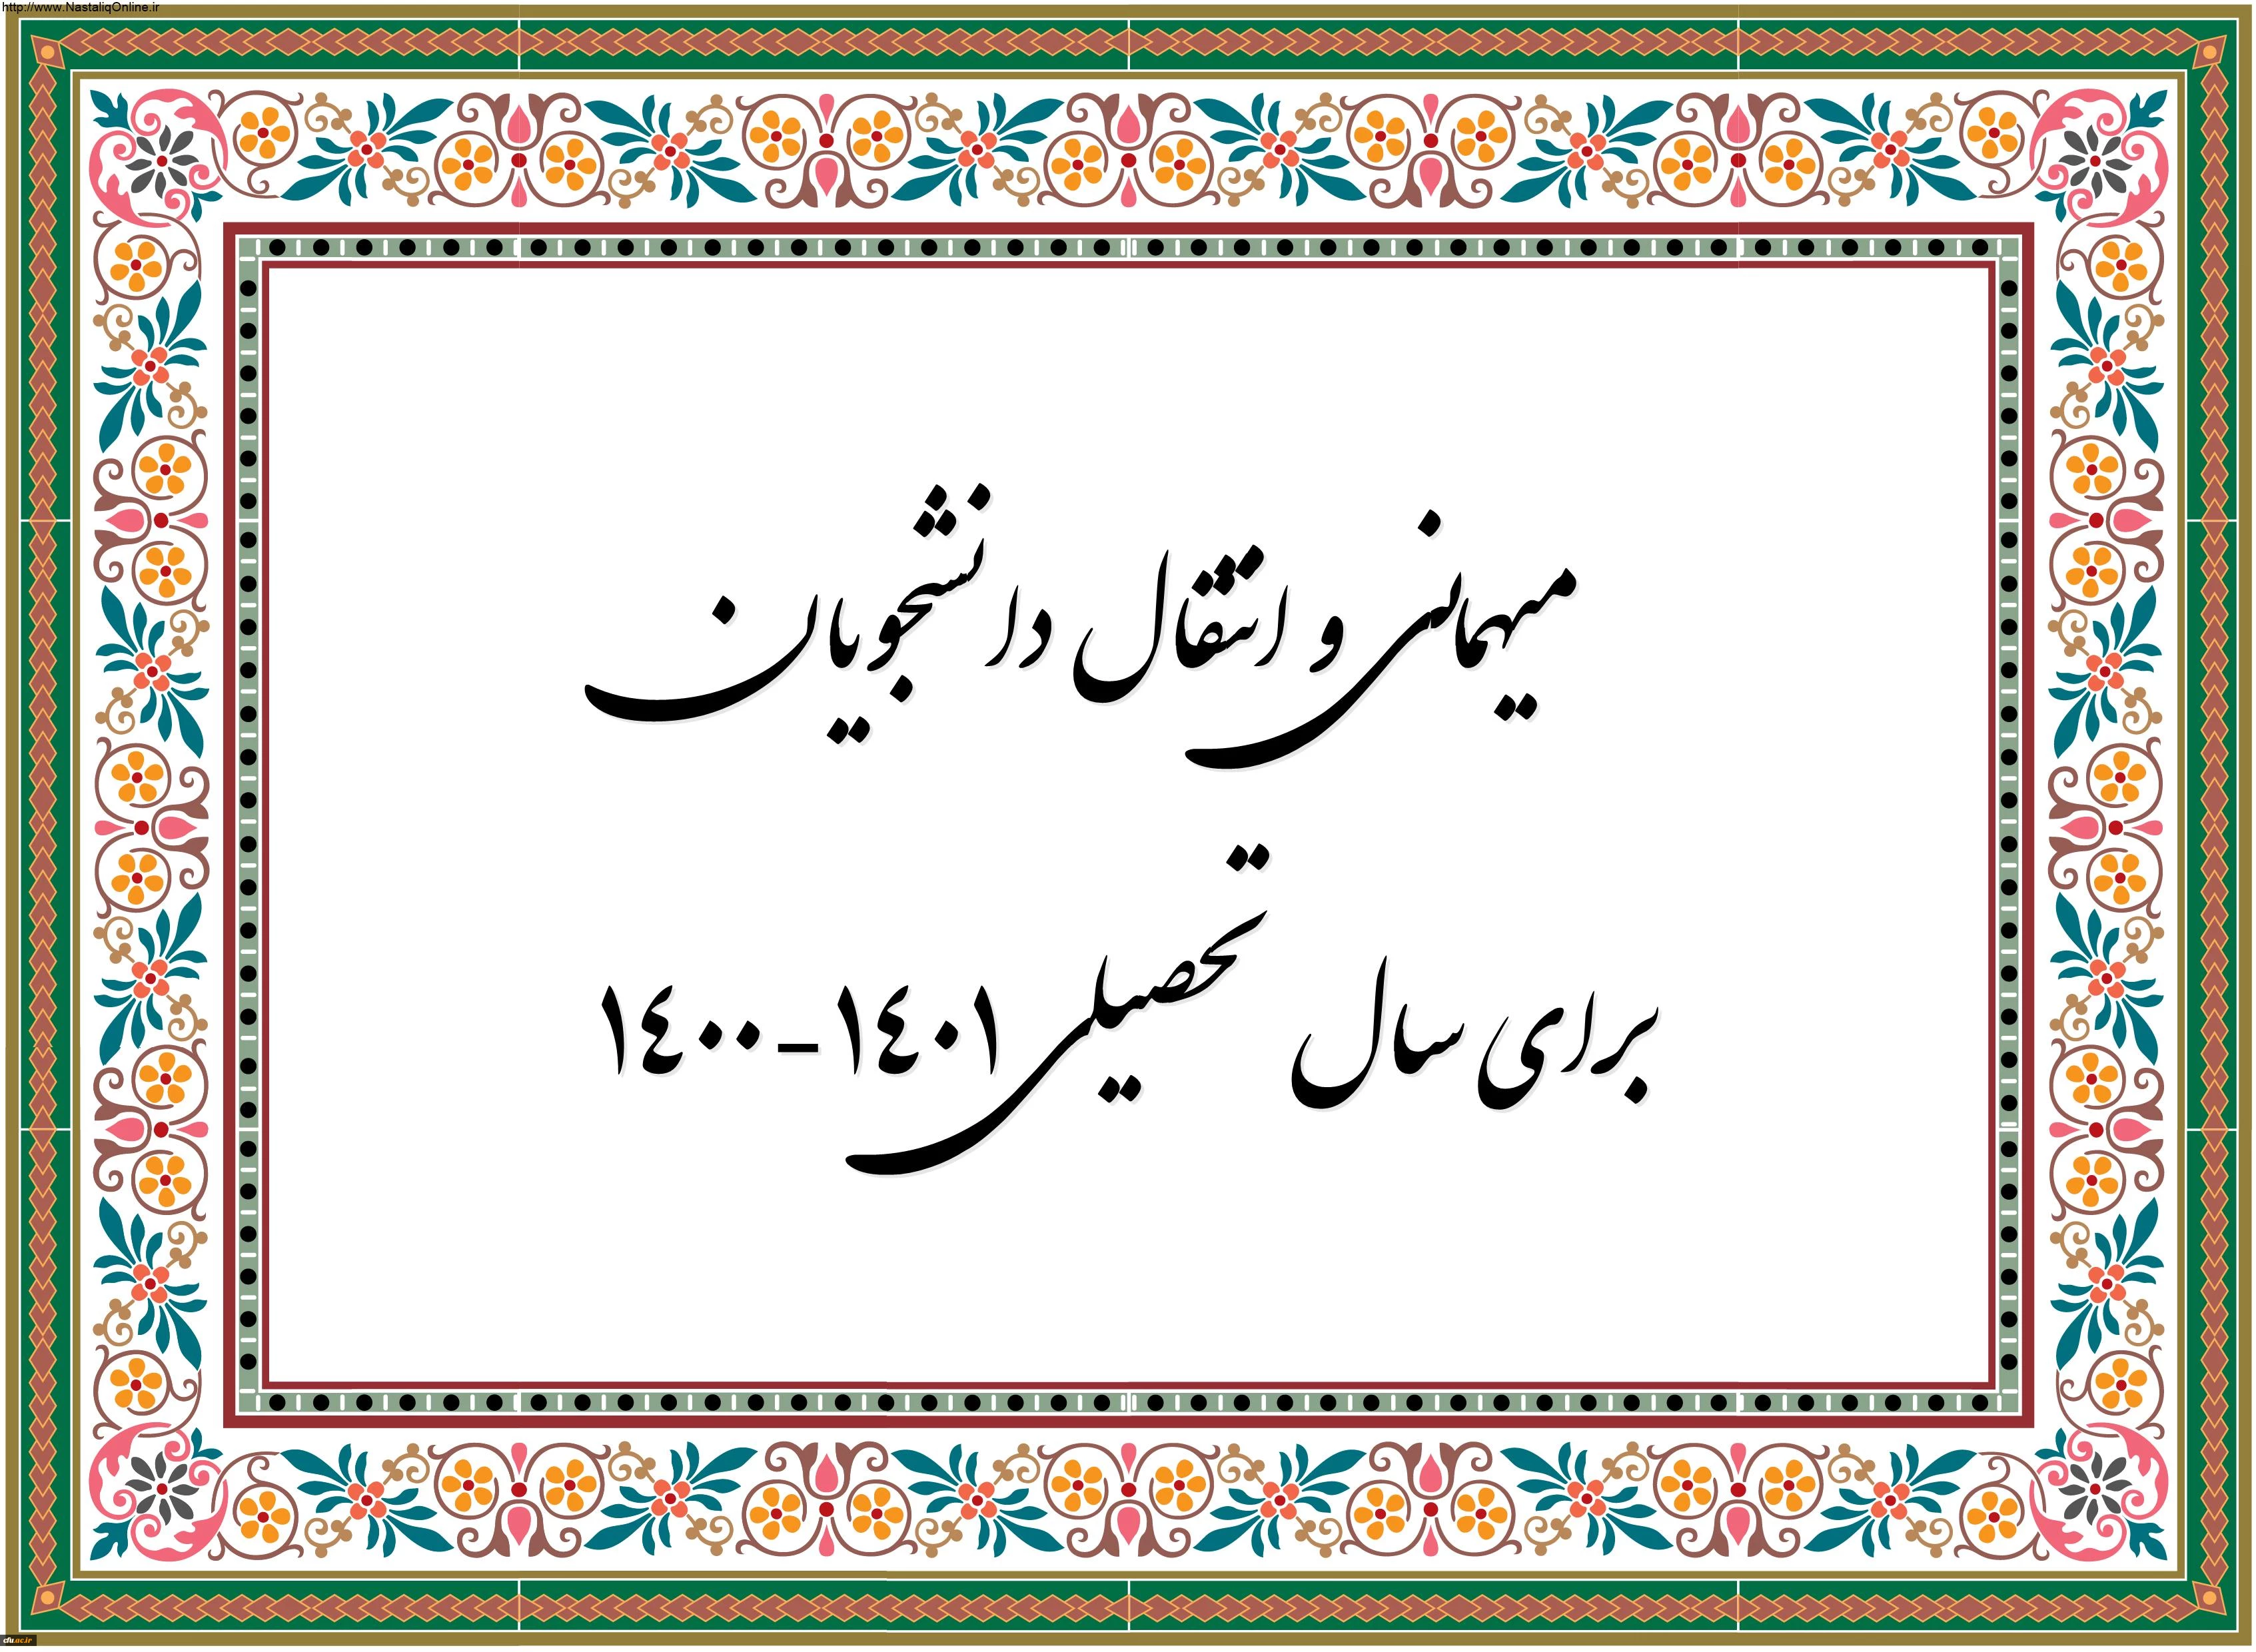 http://www.NastaliqOnline.ir
میهمانی و انتقال دانشجویان
برای سال تحصیلی ١٤٠٠-١٤٠١
cfu.ac.ir